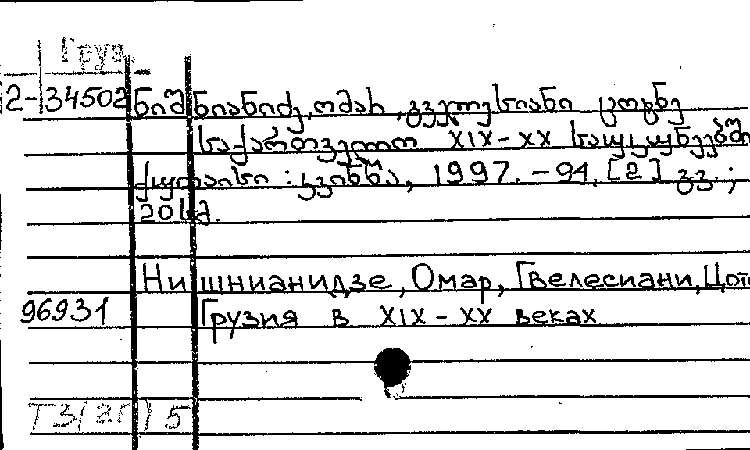 Груз.
2-34502 ნიშნიანიძე, ომარ, გველესიანი ცოტნე
საქართველო XIX-XX საუკუნეებში
ქუთაისი : კვირნა, 1997. - 94, [2] გვ. ;
20 სმ.
Нишнианидзе, Омар, Гвелесиани, Цотн
96931 Грузия в XIX-XX веках
Т3(2Г)5